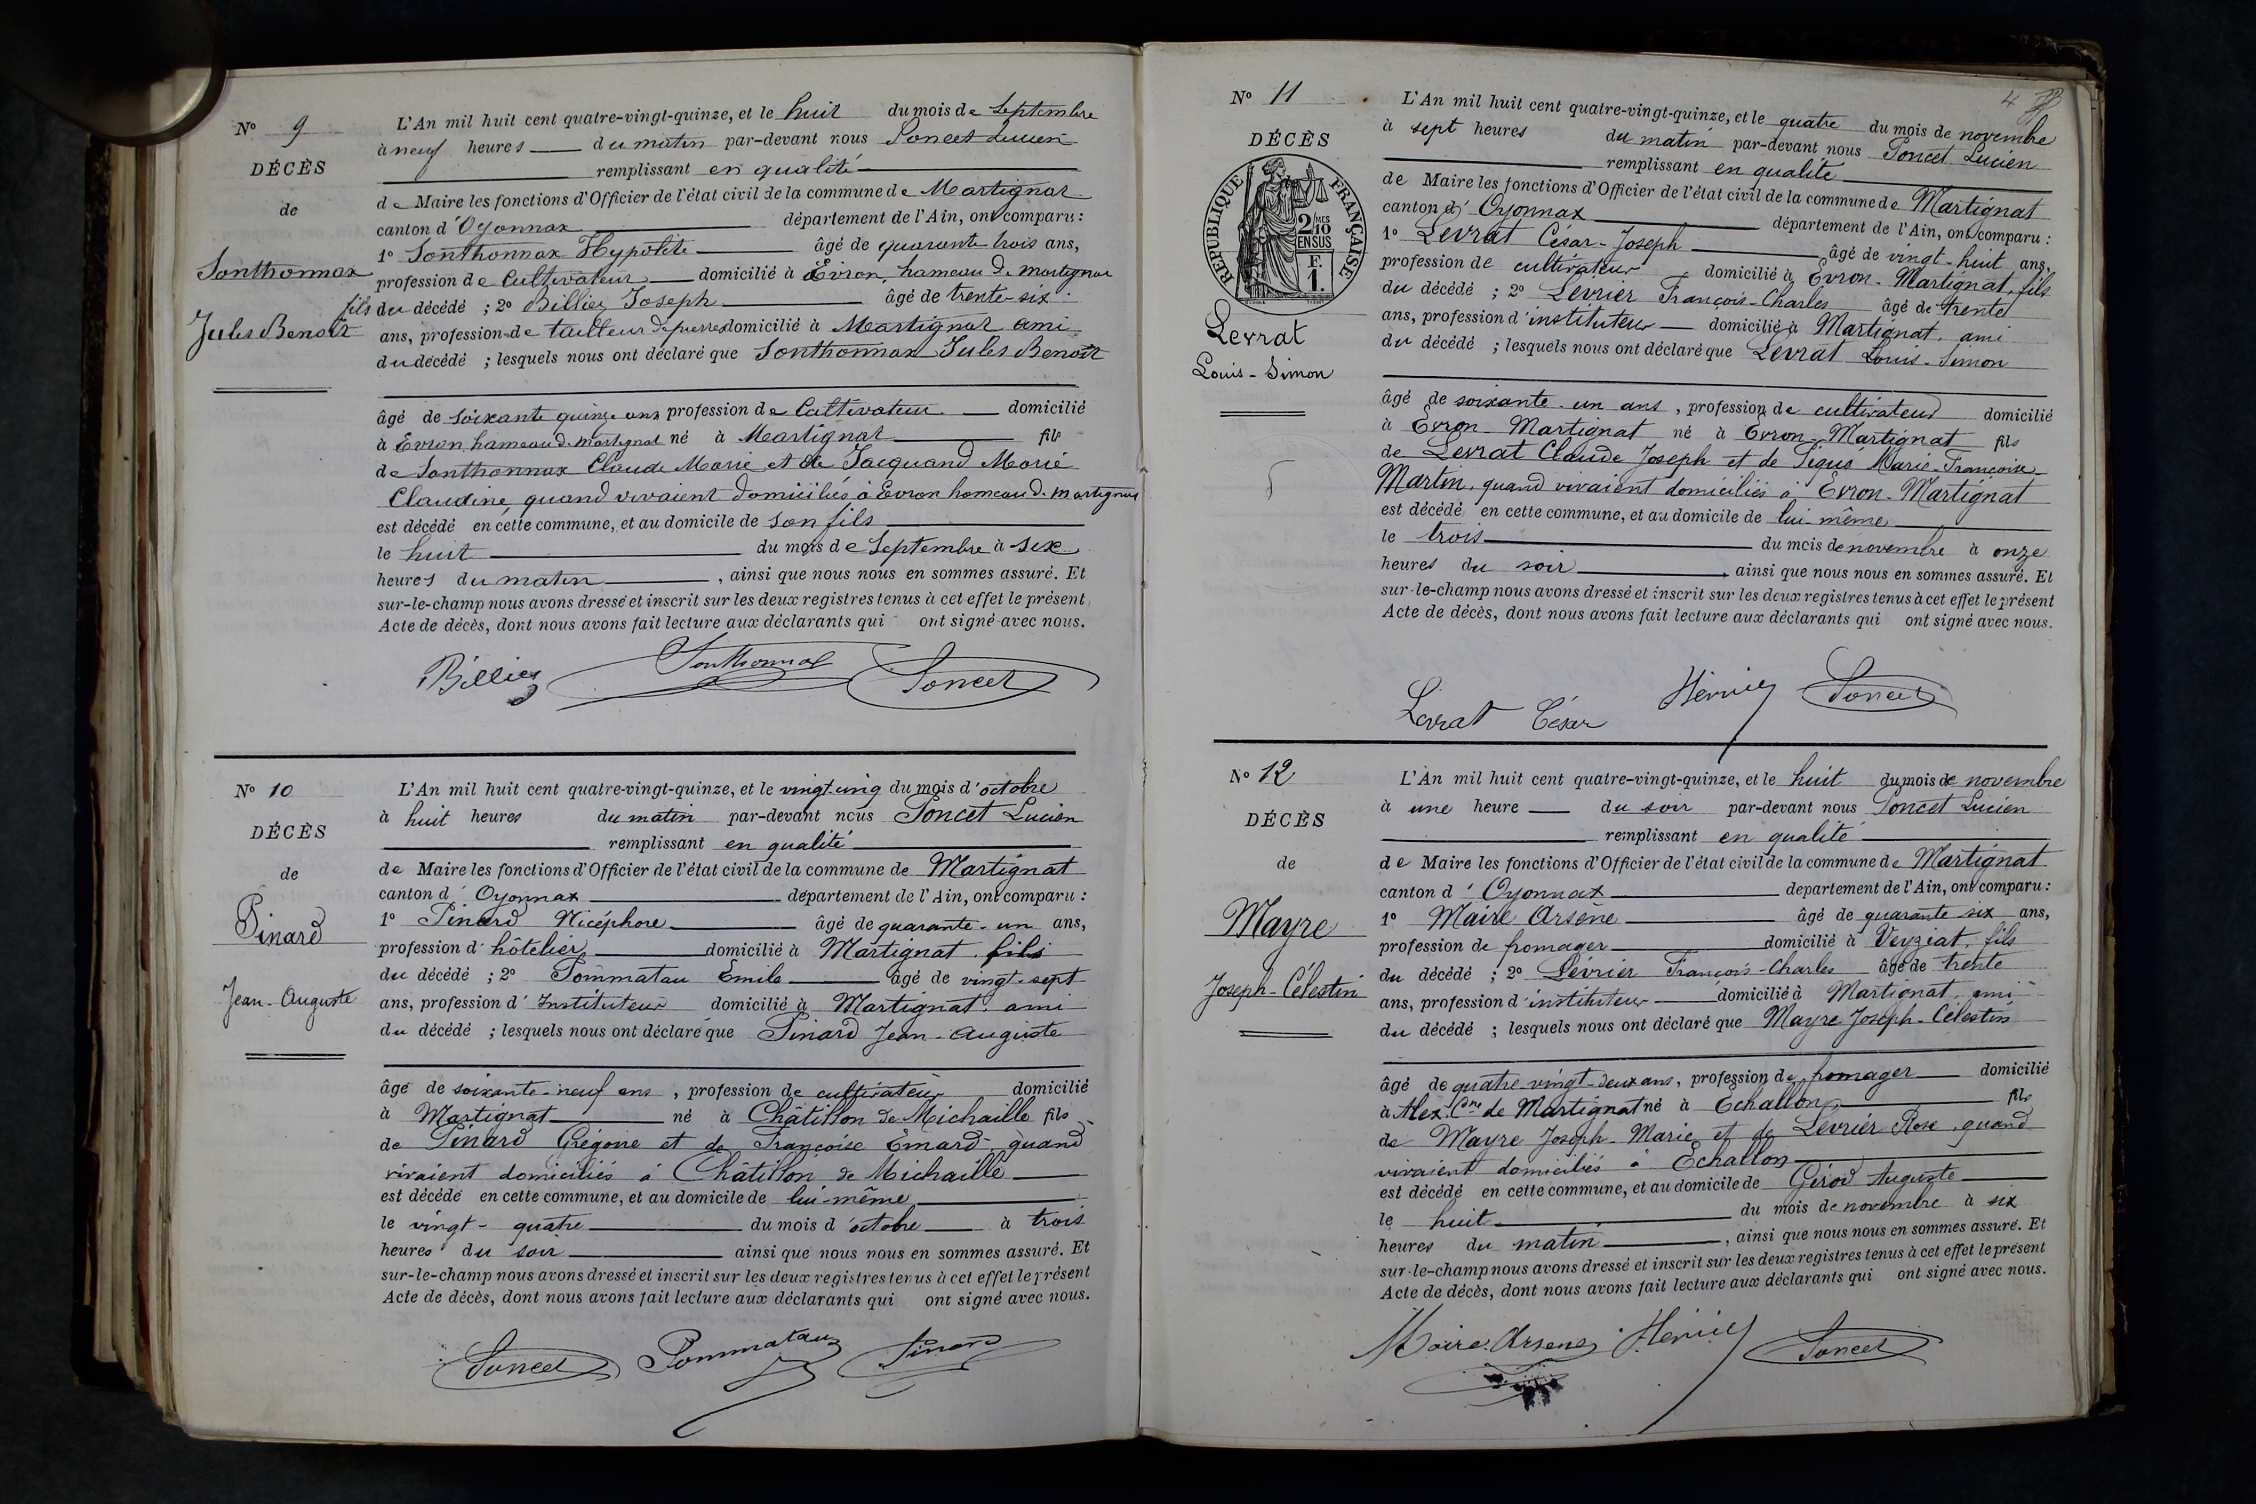 N° 9
DÉCÈS
de
Sonthonnax
Jules Benoît
L'An mil huit cent quatre-vingt-quinze, et le huit du mois de Septembre
à neuf heures du matin par-devant nous Poncet Lucien
remplissant en qualité
de Maire les fonctions d'Officier de l'état civil de la commune de Martignat
canton d'Oyonnax département de l'Ain, ont comparu :
1° Sonthonnax Hypolite âgé de quarante trois ans,
profession de Cultivateur domicilié à Evron, hameau de Martignat
fils du décédé ; 2° Billiez Joseph âgé de trente-six
ans, profession de tailleur de pierres domicilié à Martignat ami
du décédé ; lesquels nous ont déclaré que Sonthonnax Jules Benoît
âgé de soixante quinze ans profession de Cultivateur domicilié
à Evron hameau de Martignat né à Martignat fils
de Sonthonnax Claude Marie et de Jacquand Marie
Claudine, quand vivaient domiciliés à Evron hameau de Martignat
est décédé en cette commune, et au domicile de son fils
le huit du mois de Septembre à six
heures du matin, ainsi que nous nous en sommes assuré. Et
sur-le-champ nous avons dressé et inscrit sur les deux registres tenus à cet effet le présent
Acte de décès, dont nous avons fait lecture aux déclarants qui ont signé avec nous.
Billiez Sonthonnax Poncet
N° 10
DÉCÈS
de
Pinard
Jean-Auguste
L'An mil huit cent quatre-vingt-quinze, et le vingt-cinq du mois d'octobre
à huit heures du matin par-devant nous Poncet Lucien
remplissant en qualité
de Maire les fonctions d'Officier de l'état civil de la commune de Martignat
canton d'Oyonnax département de l'Ain, ont comparu :
1° Pinard Nicéphore âgé de quarante-un ans,
profession d'hôtelier domicilié à Martignat, fils
du décédé ; 2° Pommatau Emile âgé de vingt-sept
ans, profession d'Instituteur domicilié à Martignat, ami
du décédé ; lesquels nous ont déclaré que Pinard Jean-Auguste
âgé de soixante-neuf ans, profession de cultivateur domicilié
à Martignat né à Châtillon de Michaille fils
de Pinard Grégoire et de Françoise Emard, quand
vivaient domiciliés à Châtillon de Michaille
est décédé en cette commune, et au domicile de lui-même
le vingt-quatre du mois d'octobre à trois
heures du soir ainsi que nous nous en sommes assuré. Et
sur-le-champ nous avons dressé et inscrit sur les deux registres tenus à cet effet le présent
Acte de décès, dont nous avons fait lecture aux déclarants qui ont signé avec nous.
Poncet Pommatau Pinard
4
N° 11
DÉCÈS
RÉPUBLIQUE FRANÇAISE
2 MES
10
EN SUS
F.
1.
Levrat
Louis-Simon
L'An mil huit cent quatre-vingt-quinze, et le quatre du mois de novembre
à sept heures du matin par-devant nous Poncet Lucien
remplissant en qualité
de Maire les fonctions d'Officier de l'état civil de la commune de Martignat
canton d'Oyonnax département de l'Ain, ont comparu :
1° Levrat César-Joseph âgé de vingt-huit ans,
profession de cultivateur domicilié à Evron-Martignat, fils
du décédé ; 2° Lévrier François-Charles âgé de trente
ans, profession d'instituteur domicilié à Martignat, ami
du décédé ; lesquels nous ont déclaré que Levrat Louis-Simon
âgé de soixante-un ans, profession de cultivateur domicilié
à Evron-Martignat né à Evron-Martignat fils
de Levrat Claude Joseph et de Marie-Françoise
Martin, quand vivaient domiciliés à Evron-Martignat
est décédé en cette commune, et au domicile de lui-même
le trois du mois de novembre à onze
heures du soir, ainsi que nous nous en sommes assuré. Et
sur-le-champ nous avons dressé et inscrit sur les deux registres tenus à cet effet le présent
Acte de décès, dont nous avons fait lecture aux déclarants qui ont signé avec nous.
Levrat César Poncet
N° 12
DÉCÈS
de
Mayre
Joseph-Célestin
L'An mil huit cent quatre-vingt-quinze, et le huit du mois de novembre
à une heure du soir par-devant nous Poncet Lucien
remplissant en qualité
de Maire les fonctions d'Officier de l'état civil de la commune de Martignat
canton d'Oyonnax département de l'Ain, ont comparu :
1° Maire Arsène âgé de quarante-six ans,
profession de fromager domicilié à Veyziat, fils
du décédé ; 2° Lévrier François-Charles âgé de trente
ans, profession d'instituteur domicilié à Martignat, ami
du décédé ; lesquels nous ont déclaré que Mayre Joseph-Célestin
âgé de quatre-vingt-deux ans, profession de fromager domicilié
à Alex. Cne de Martignat né à Echallon fils
de Mayre Joseph-Marie et de Lévrier Rose, quand
vivaient domiciliés à Echallon
est décédé en cette commune, et au domicile de Gérod Auguste
le huit du mois de novembre à six
heures du matin, ainsi que nous nous en sommes assuré. Et
sur-le-champ nous avons dressé et inscrit sur les deux registres tenus à cet effet le présent
Acte de décès, dont nous avons fait lecture aux déclarants qui ont signé avec nous.
Maire Arsene Poncet